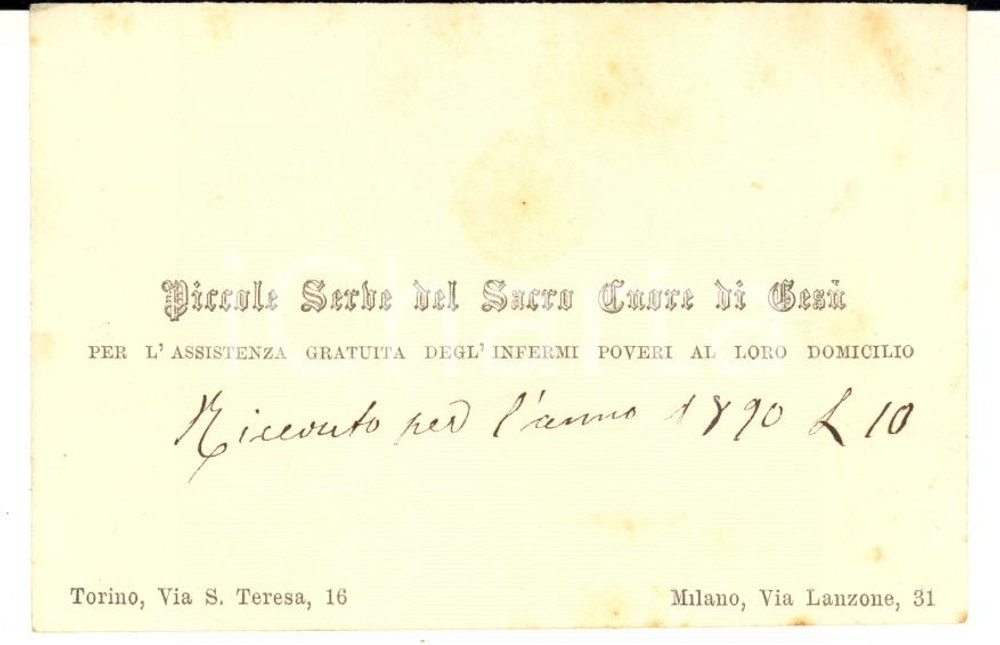 Piccole Serve del Sacro Cuore di Gesù
PER L' ASSISTENZA GRATUITA DEGL' INFERMI POVERI AL LORO DOMICILIO
Ricevuto per l'anno 1890 L 10
Torino, Via S. Teresa, 16
Milano, Via Lanzone, 31
iCharta